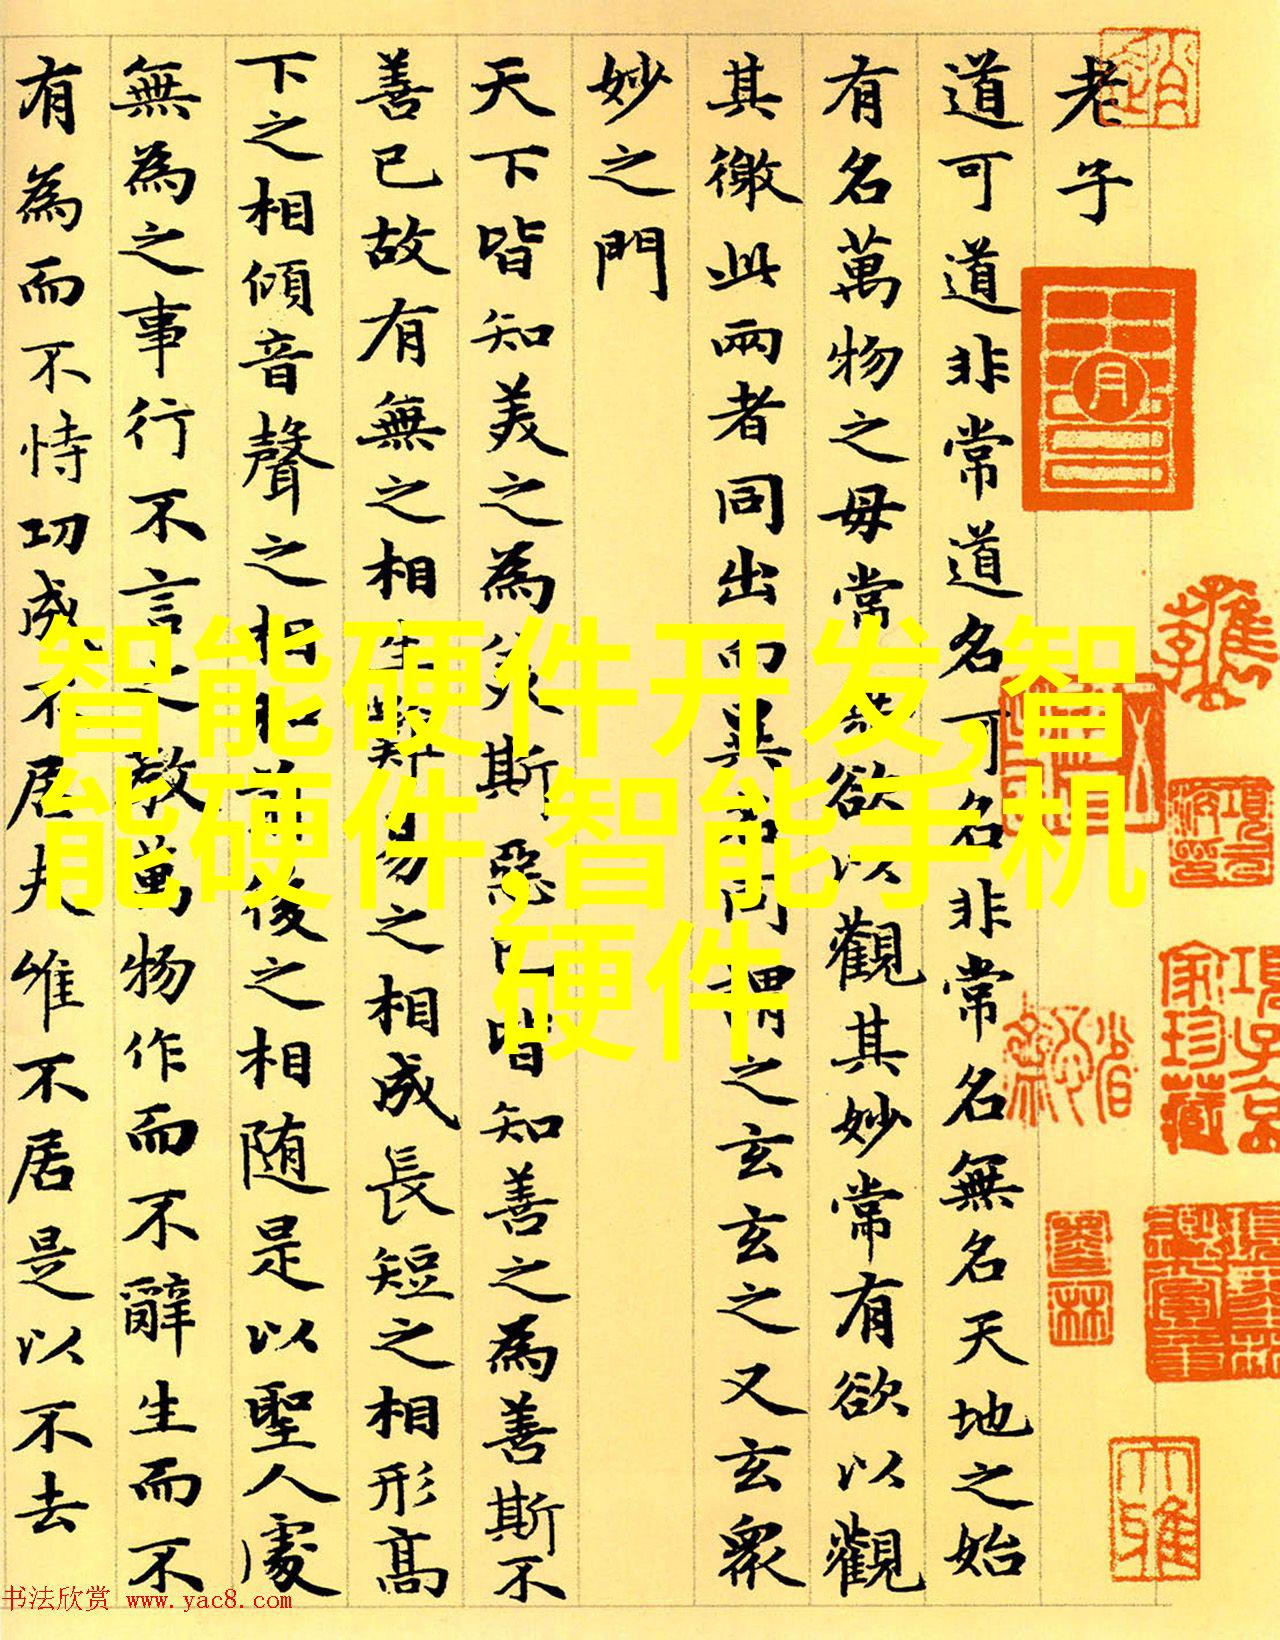 老子
道可道非常道名可名非常名無名天地之始
有名萬物之毋常無欲以觀其妙常有欲以觀
其徼此兩者同出而異名同謂之玄玄之又玄眾
妙之門
天下皆知美之為美斯惡已皆知善之為善斯不
善已故有無之相生難易之相成長短之相形髙
下之相傾音聲之相和前後之相随是以聖人處
無為之事行不言之教萬物作而不辭生而不
有為而不恃功成不居夫唯不居是以不去
智能硬件开发,智
能硬件,智能手机
硬件
項子京
家珍藏
书法欣赏 www.yac8.com